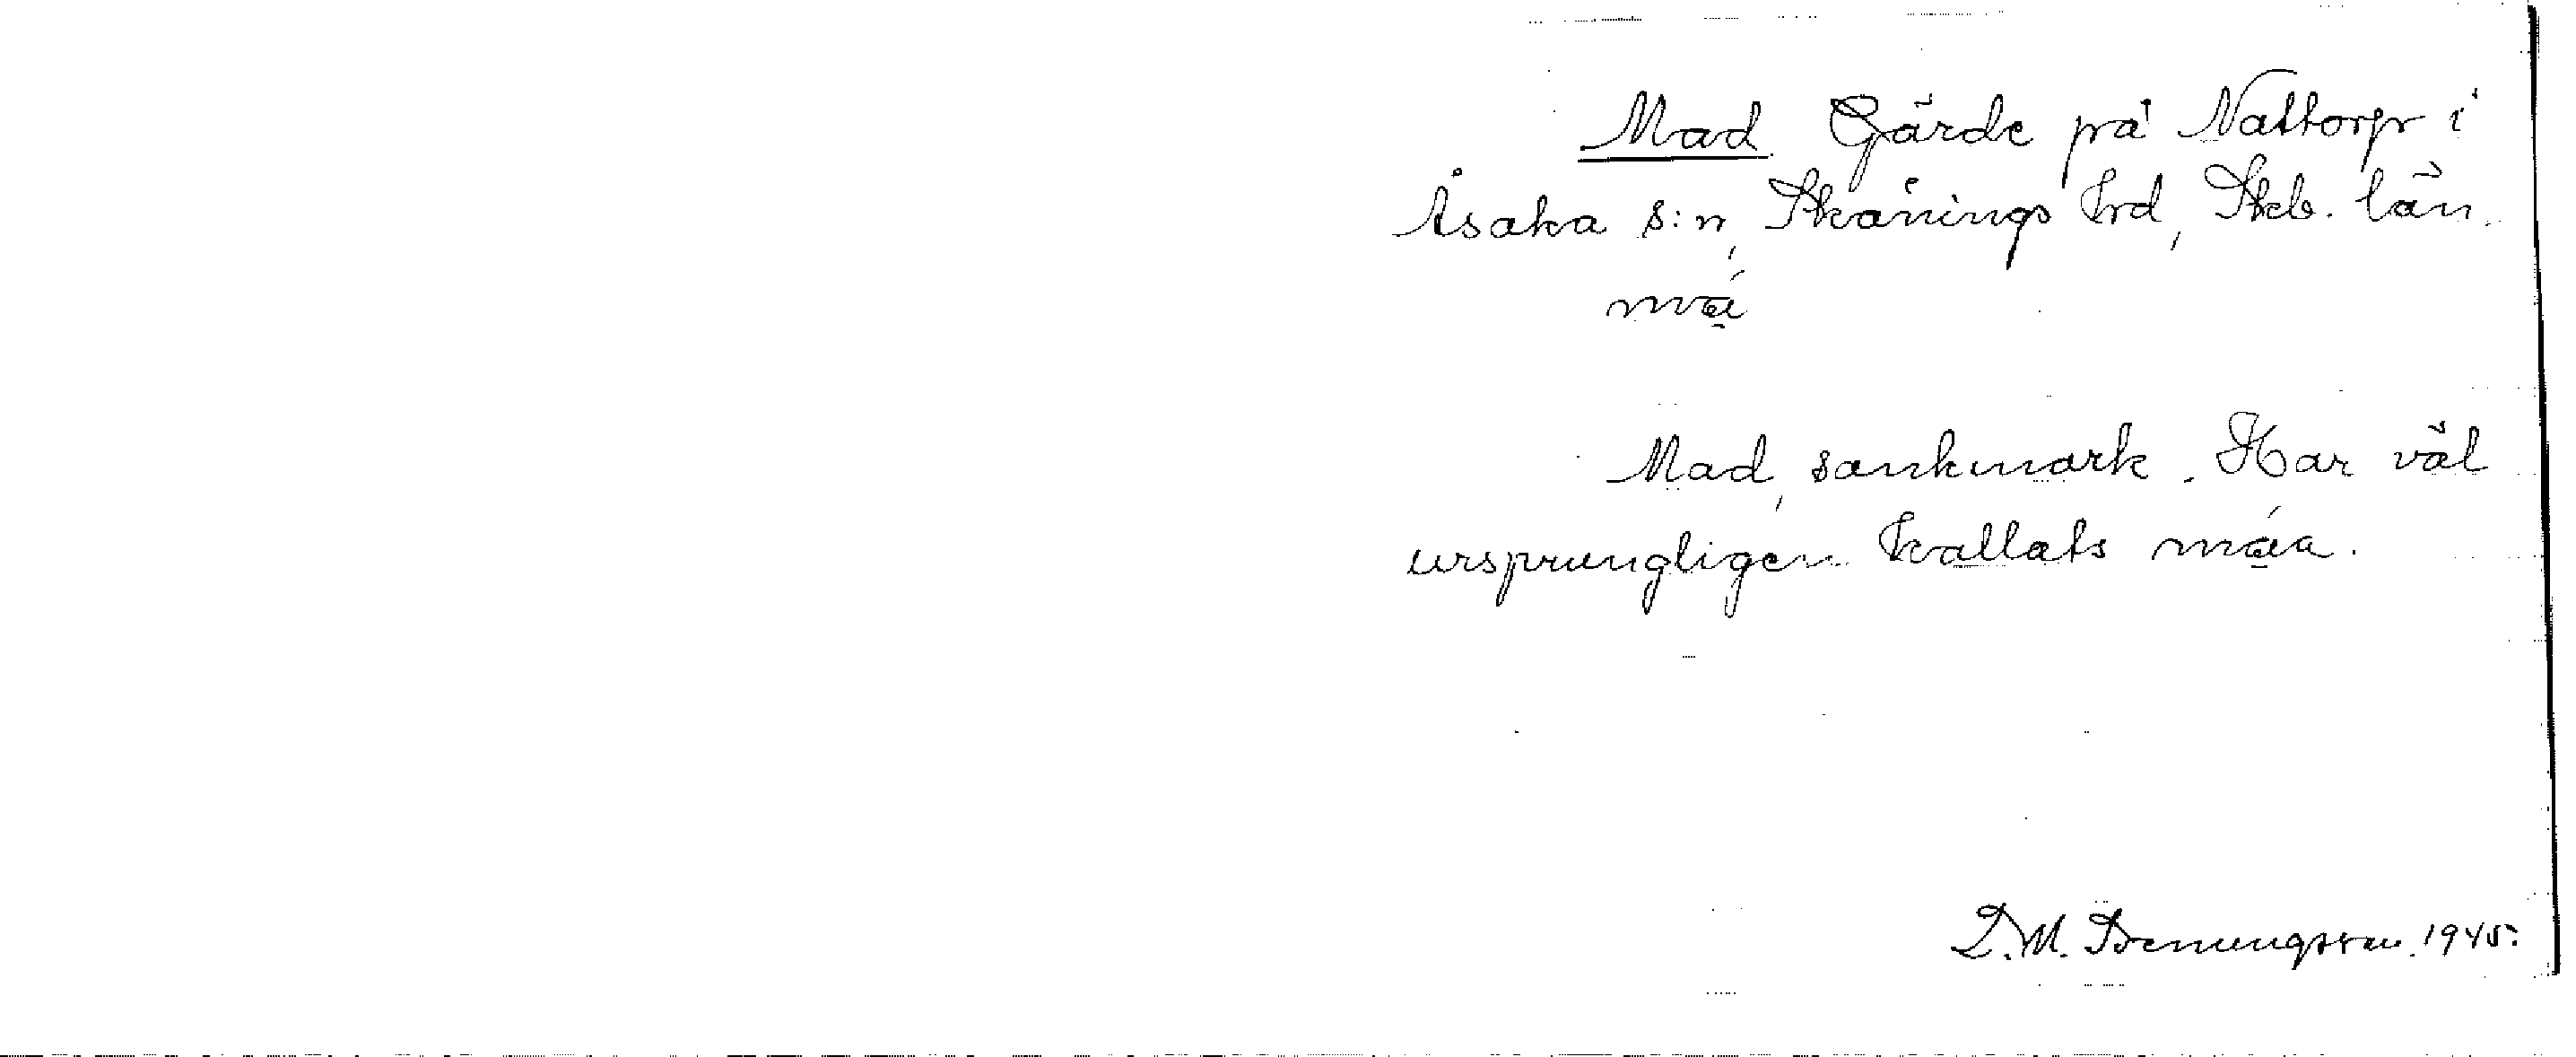 Mad Gärde på Nattorp i
Åsaka s:n, Skånings hd, Skb. län.
må
Mad, sankmark. Har väl
ursprungligen kallats måa.
D. M. 1945.